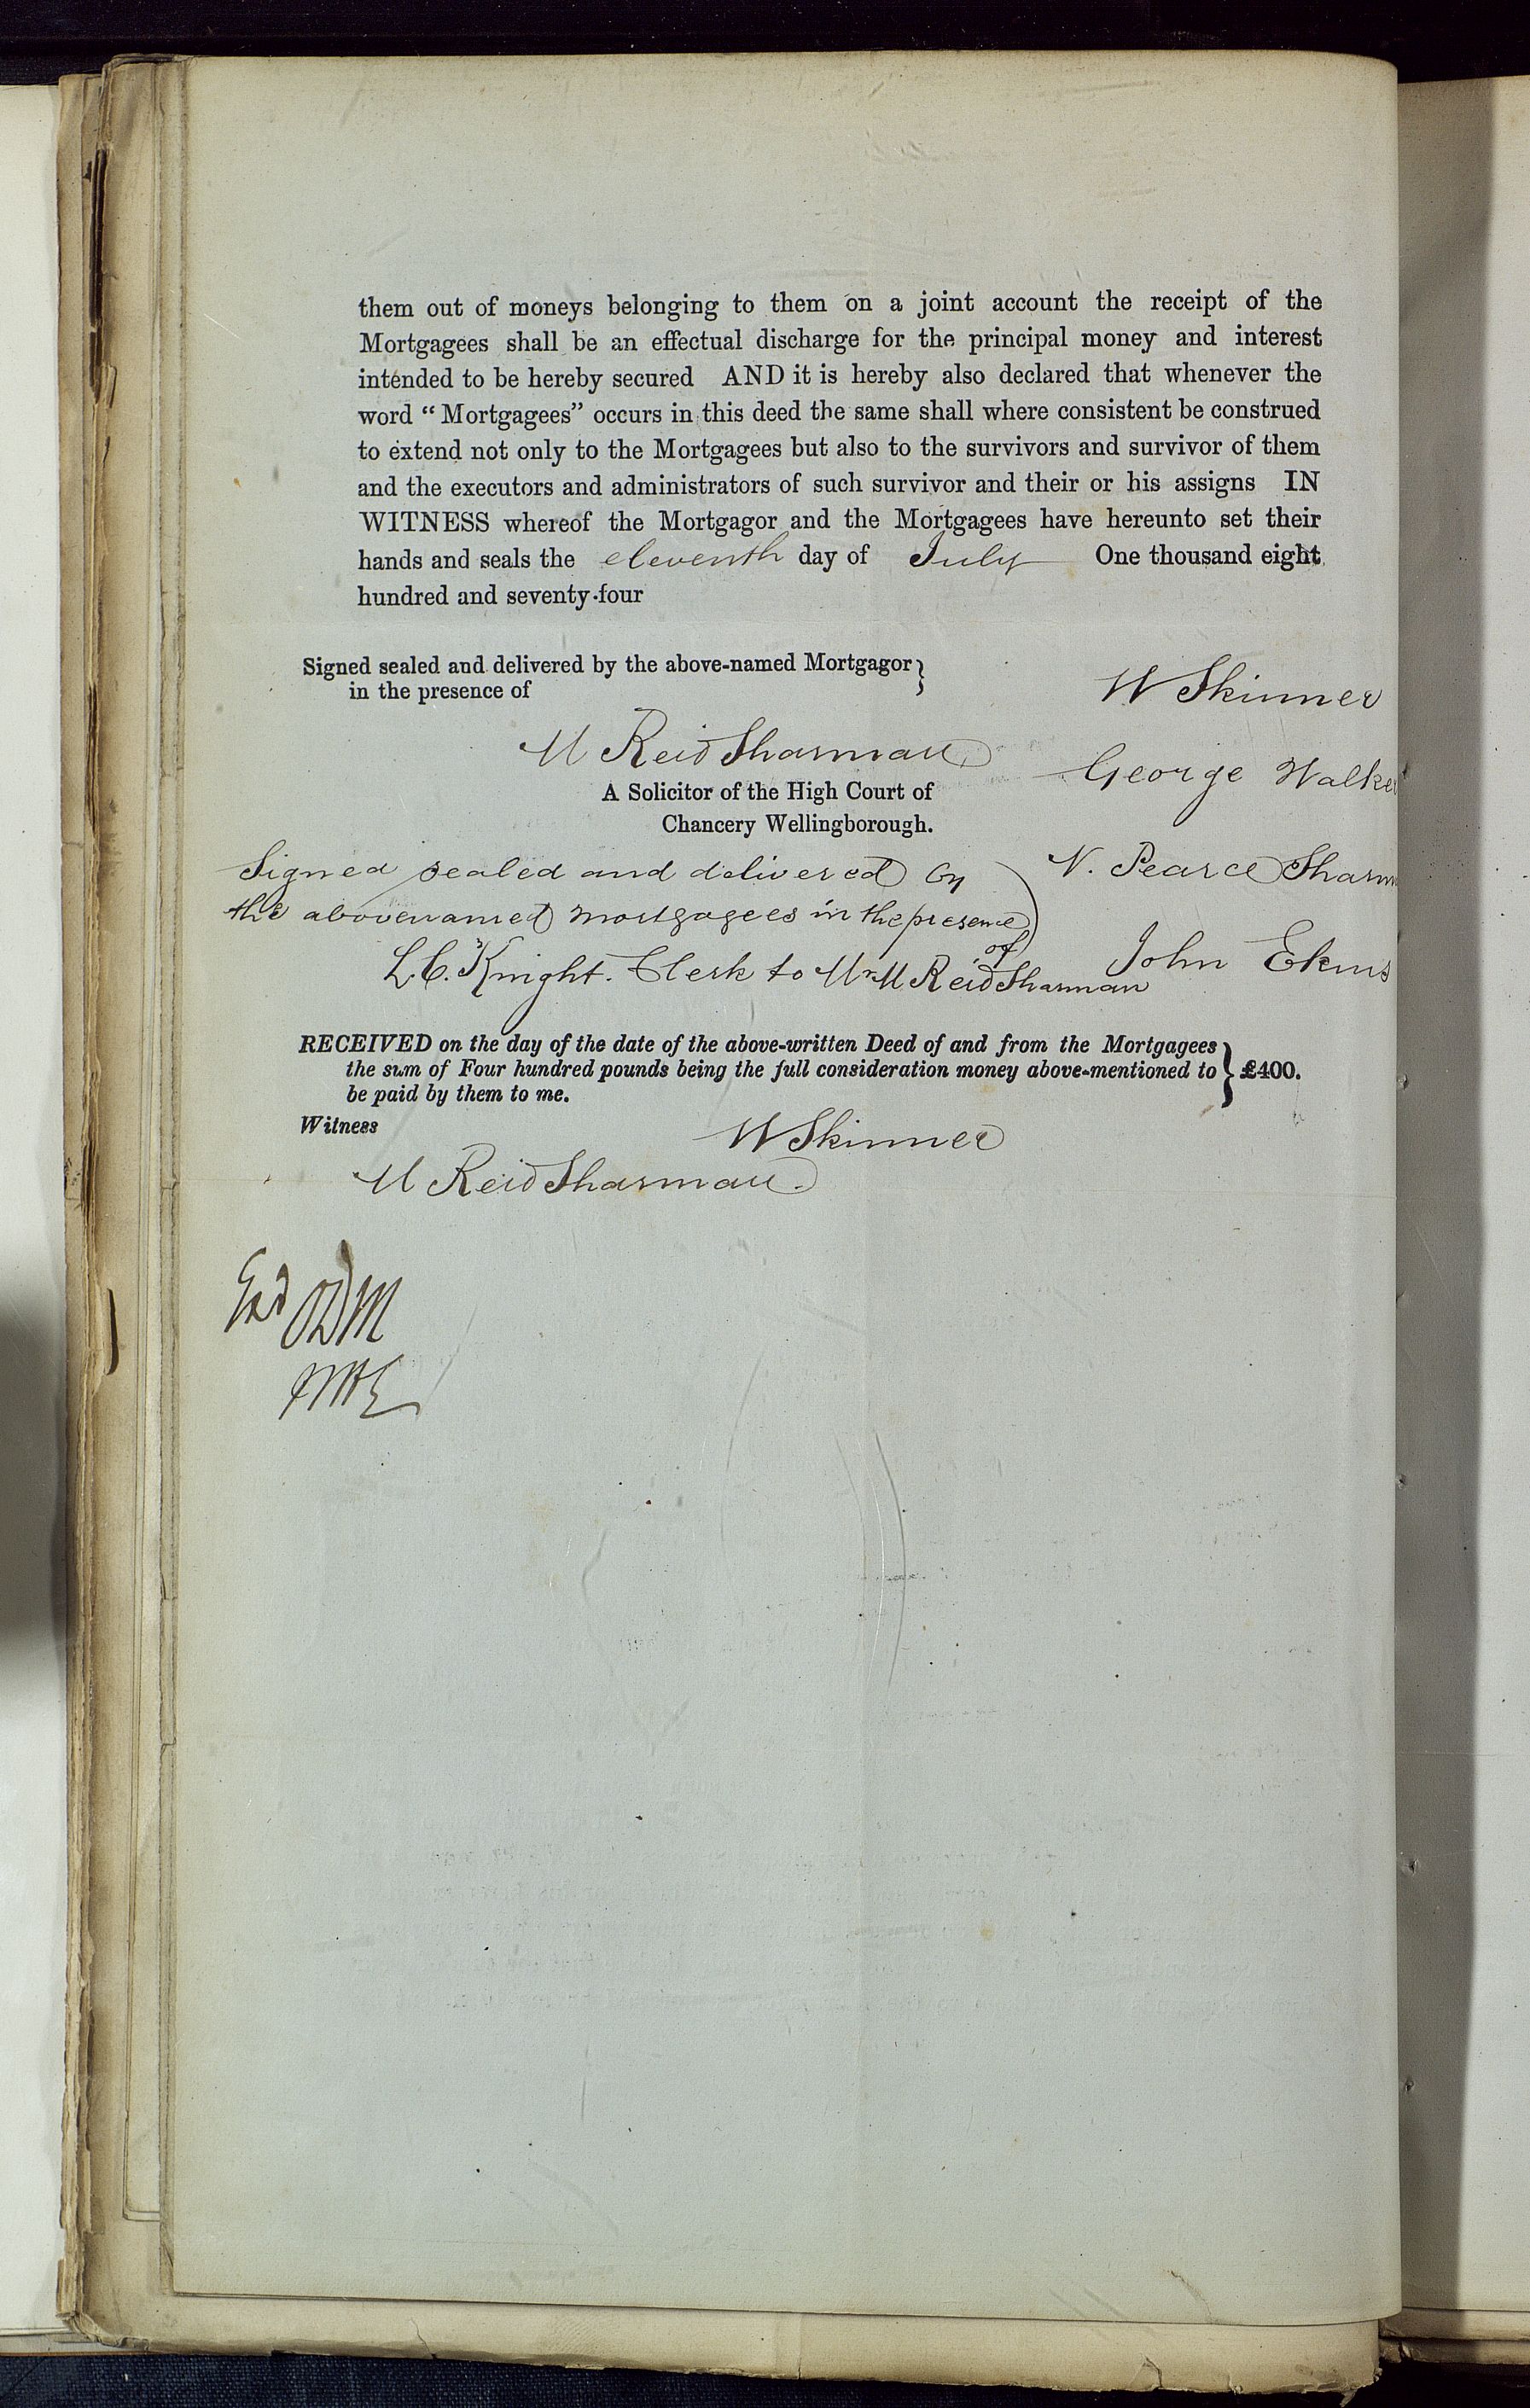 them out of moneys belonging to them on a joint account the receipt of the
Mortgagees shall be an effectual discharge for the principal money and interest
intended to be hereby secured AND it is hereby also declared that whenever the
word “Mortgagees” occurs in this deed the same shall where consistent be construed
to extend not only to the Mortgagees but also to the survivors and survivor of them
and the executors and administrators of such survivor and their or his assigns IN
WITNESS whereof the Mortgagor and the Mortgagees have hereunto set their
hands and seals the eleventh day of July One thousand eight
hundred and seventy-four
Signed sealed and delivered by the above-named Mortgagor
in the presence of
W Skinner
M Reid Sharman
George Walker
A Solicitor of the High Court of
Chancery Wellingborough.
Signed sealed and delivered by
the abovenamed mortgagees in the presence
of
N. Pearce Sharm
L. C. Knight. Clerk to Mr M Reid Sharman
John Ekins
RECEIVED on the day of the date of the above-written Deed of and from the Mortgagees
the sum of Four hundred pounds being the full consideration money above-mentioned to
be paid by them to me.
£400.
Witness
W Skinner
M Reid Sharman.